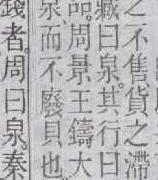 之不售貨之滯
藏曰泉。其行曰
品。周景王鑄大
泉。而不廢貝也。
錢者。周曰泉。秦